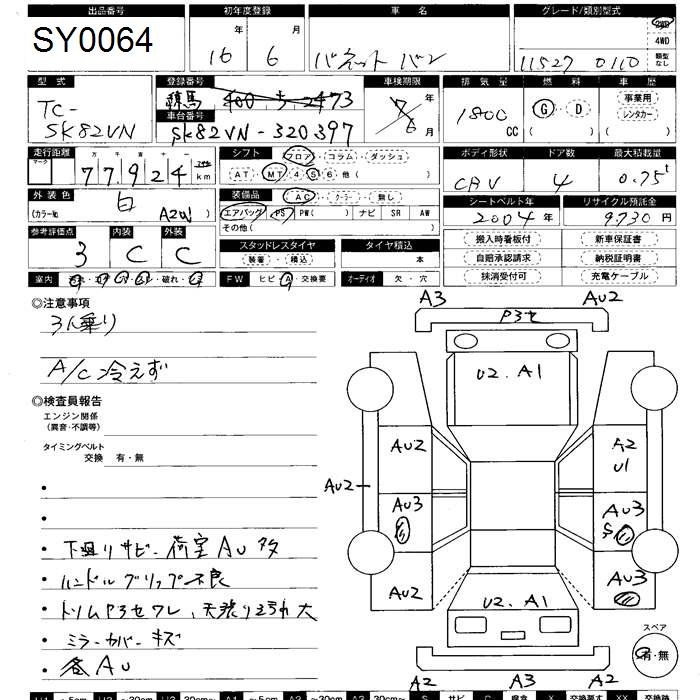 出品番号 初年度登録 車 名 グレード/類別型式
SY0064 16 年 6 月 バネットバン 11527 0110 2WD 4WD 類型なし
型 式 登録番号 車検期限 排 気 量 燃 料 車 歴
TC-SK82VN 練馬 400 2473 7年 6月 1800 CC G ・ D 事業用 レンタカー
車台番号
SK82VN-320397
走行距離 シフト フロア ・ コラム ・ ダッシュ ボディ形状 ドア数 最大積載量
マーク 万 千 百 十 一 77924 km AT ・ MT 4 5 6 ・ 他 ( ) CAV 4 0.75t
外 装 色 装備品 AC ・ クーラー ・ 無し シートベルト年 リサイクル預託金
(カラー№ 白 A2W ) エアバッグ PS PW( ) ナビ SR AW 2004 年 9730 円
その他 ( )
参考評価点 内装 外装 スタッドレスタイヤ タイヤ積込 搬入時看板付 新車保証書
3 C C 装着 ・ 積込 本 自賠承認請求 納税証明書
室内 破れ FW ヒビ A 交換要 オーディオ 欠 ・ 穴 抹消受付可 充電ケーブル
◎注意事項
3人乗り
A/C冷えず
◎検査員報告
エンジン関係
(異音・不調等)
タイミングベルト
交換 有・無
・下廻りサビ 荷室AU多
・ハンドルグリップ不良
・トリムP3セワレ、天張り
・ミラーカバーキズ
・各AU
A3 AU2
P3セ
U2. A1
AU2 A2 U1
AU2
AU3 AU3 S
AU2 AU3
U2. A1
スペア
有・無
A2 A3 A2